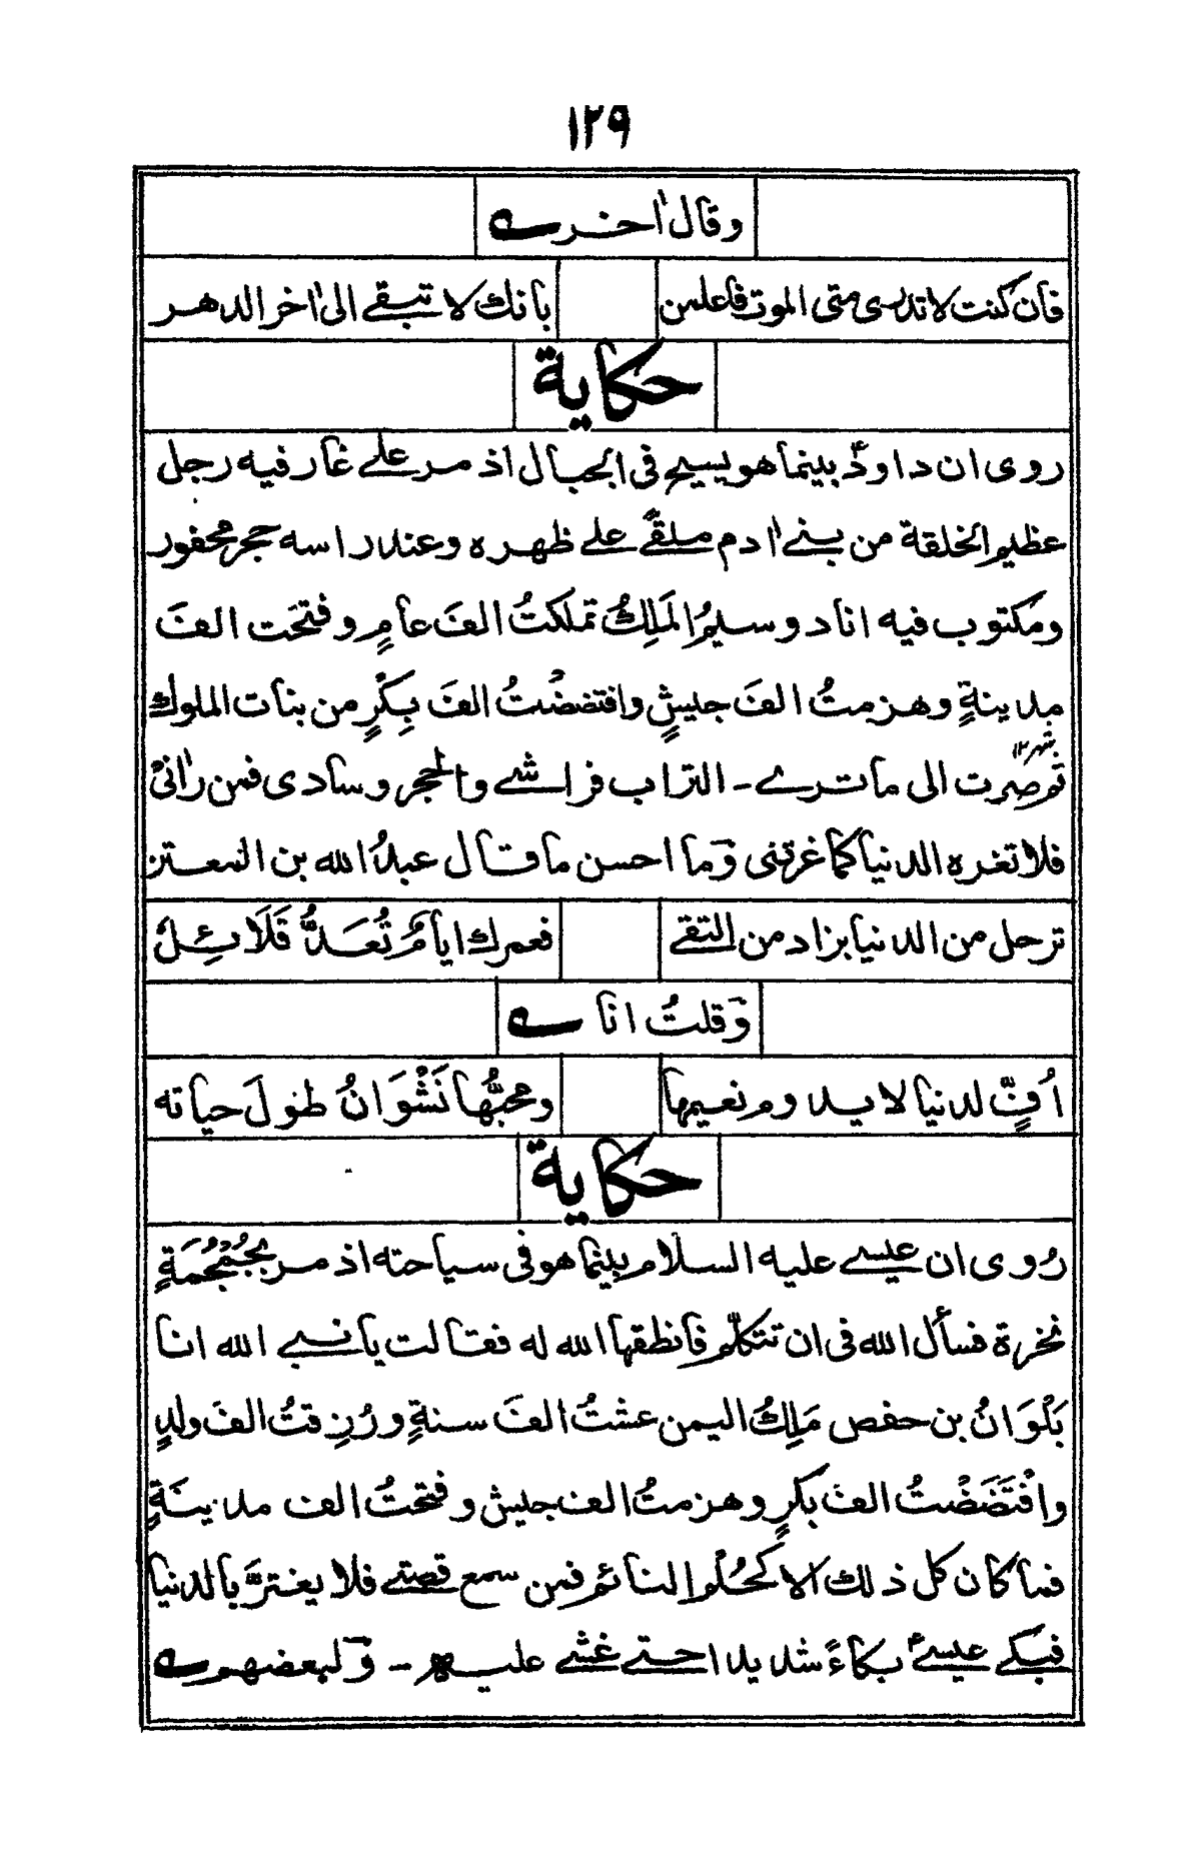 ١٢٩
وقال اٰخر ے
فان كنت لا تدرى متى الموت فاعلمن بانك لا تبقے الى اٰخر الدهر
حكاية
روى ان داودؑ بينما هو يسيح فى الجبال اذ مر علے غار فيه رجل
عظيم الخلقة من بنے اٰدم ملقًے علے ظهره وعند راسه حجر محفور
ومكتوب فيه انا دوسيمُ المَلِكُ تملكتُ الفَ عامٍ وفتحَت الفَ
مدينةٍ وهزمتُ الفَ جيشٍ وافتضضْتُ الفَ بِكْرٍ من بنات الملوك
ثم صرت الى ما ترے ـ التراب فراشے والحجر وسادى فمن راٰنىْ
فلا تغره الدنيا كما غرتنى وَما احسن ما قال عبدُ الله بن المعتز
ترحل من الدنيا بزاد من التقے فعمرك ايامٌ تُعَدُّ قَلَائِلُ
وَقلتُ انا ے
اُفٍّ لدنيا لا يدوم نعيمها ومحبُّها نَشْوَانُ طولَ حياته
حكاية
رُوى ان عيسے عليه السلام بينما هو فى سياحته اذ مر بجُمْجُمَةٍ
نخرة فسأل الله فى ان تتكلّم فانطقها الله له فقالت يا نبے الله انا
بَلْوَانُ بن حفص مَلِكُ اليمن عشتُ الفَ سنةٍ ورُزِقتُ الفَ ولدٍ
وافْتَضَضْتُ الفَ بكرٍ وهزمتُ الف جيش وفتحتُ الف مدينةٍ
فما كان كل ذلك الا كحُلُم النائم فمن سمع قصتے فلا يغترَّ بالدنيا
فبكے عيسےؑ بكاءً شديدا حتے غشے عليه ـ وَلبعضهم ے